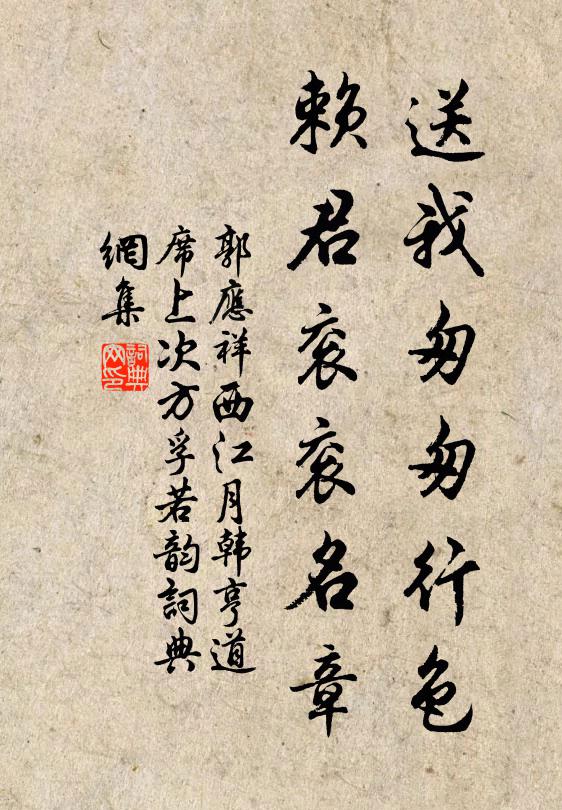 送我匆匆行色
赖君衮衮名章
郭應祥西江月韩亨道
席上次方孚若韵詞典
網集
詞典網印